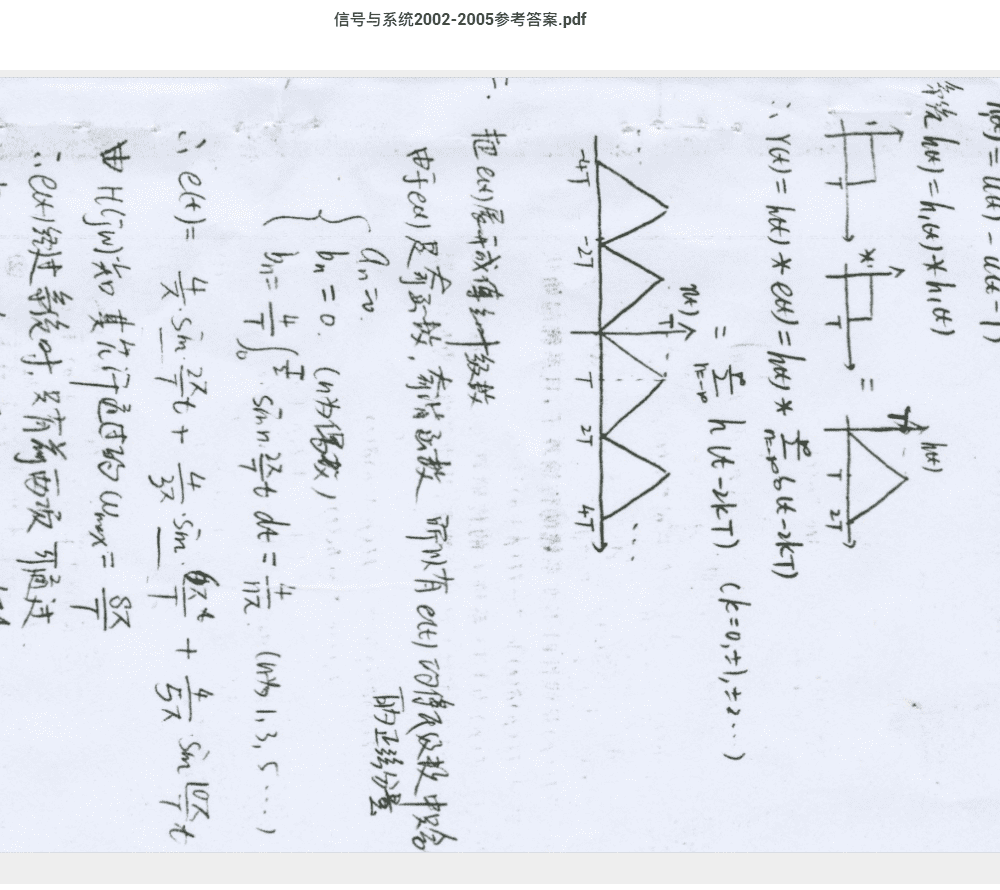 信号与系统2002-2005参考答案.pdf
h₁(t) = u(t) - u(t-T)
系统 h(t) = h₁(t) * h₁(t)
T * T = h(t) T T 2T
∴ r(t) = h(t) * e(t) = h(t) * Σ δ(t-2kT)
= Σ h(t-2kT). (k=0,±1,±2...)
r(t)
T
-4T -2T T 2T 4T ...
二.
把e(t)展开成傅立叶级数
由于e(t)是奇函数,奇谐函数 所以有e(t)的傅氏级数中只含
的正弦分量
aₙ=0
bₙ=0. (n为偶数)
bₙ= 4/T ∫₀^(T/2) sin n·2π/T t dt = 4/nπ. (n为1,3,5...)
∴ e(t) = 4/π·sin 2π/T t + 4/3π·sin 6π/T t + 4/5π·sin 10π/T t
由H(jw)知 其允许通过的ωmax= 8π/T
∴ e(t)经过系统时 只有前两项可通过